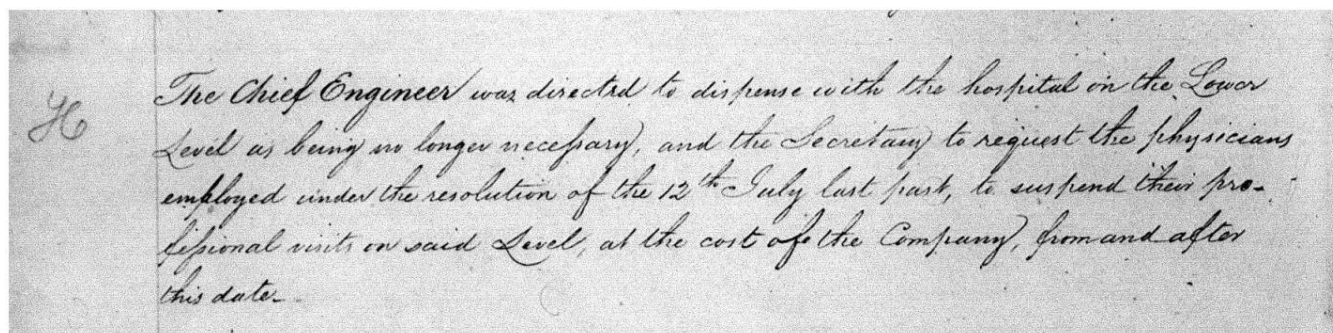 The Chief Engineer was directed to dispense with the hospital on the Lower
H
Level as being no longer necessary, and the Secretary to request the physicians
employed under the resolution of the 12th July last past, to suspend their pro-
fessional visits on said Level, at the cost of the Company, from and after
this date.